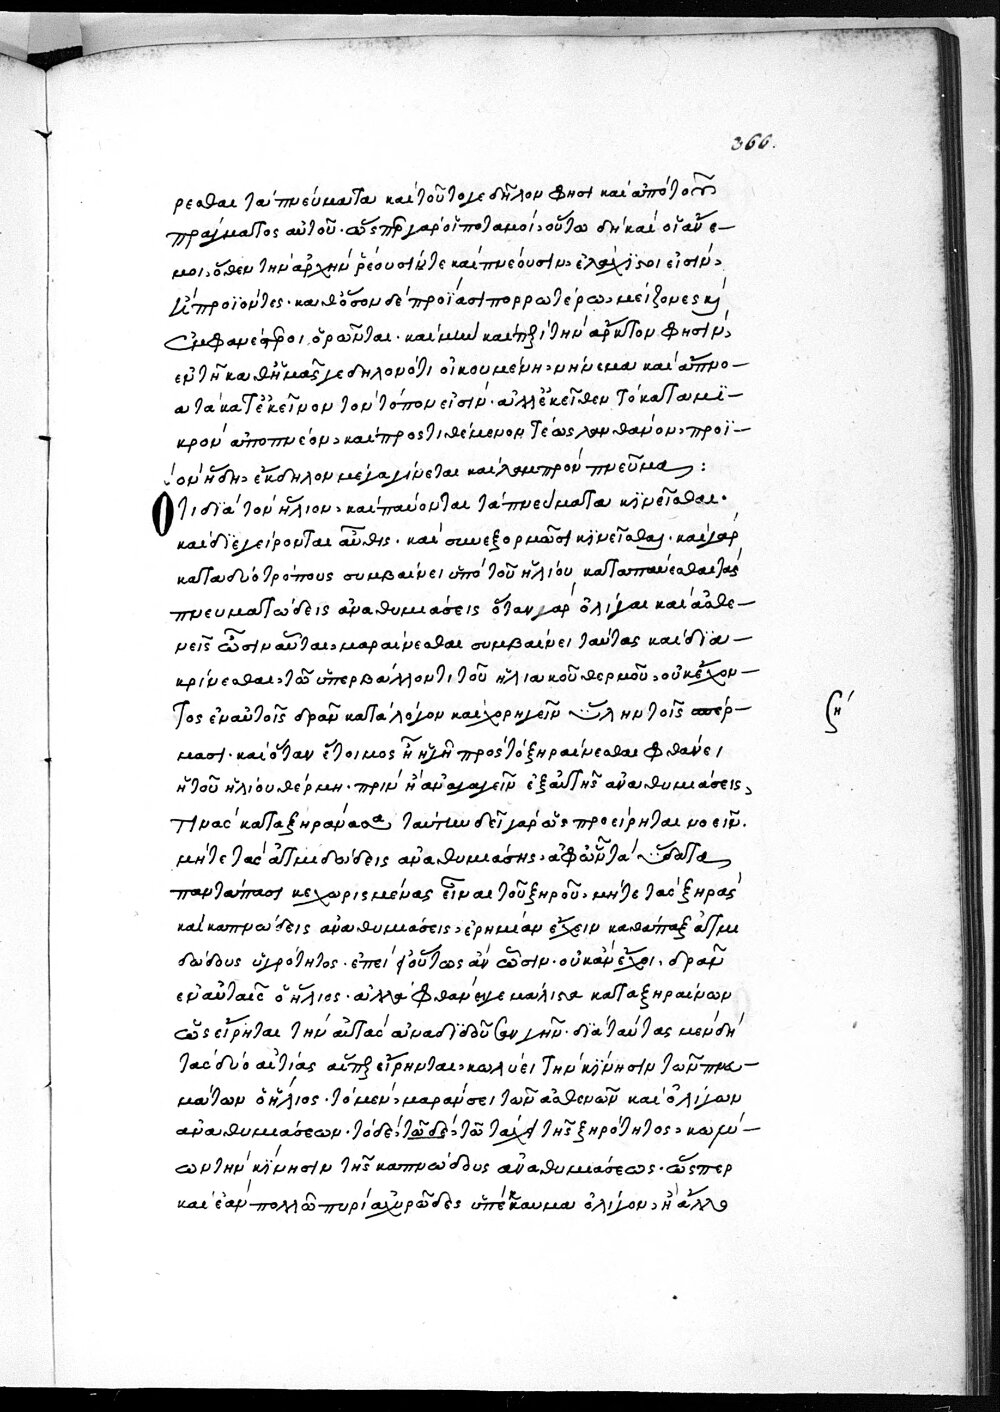 366.
ρεσθαι τὰ πνεύματα καὶ τοῦτό γε δῆλον φησὶ καὶ ἀπὸ τοῦ
πράγματος αὐτοῦ. ὥσπερ γὰρ οἱ ποταμοὶ, οὕτω δὴ καὶ οἱ ἄνε-
μοι, ὅθεν τὴν ἀρχὴν ῥέουσίν τε καὶ πνέουσιν, ἐλάχιστοι εἰσὶν,
προϊόντες. καθόσον δὲ προΐασι πορρωτέρω, μείζονες καὶ
ἐμφανέστεροι ὁρῶνται. καὶ περὶ τὴν ἄρκτον φησὶν,
ἐν τῇ καθ' ἡμᾶς γε δηλονότι οἰκουμένῃ, νήνεμα καὶ ἄπνο-
α τὰ κατ' ἐκεῖνον τὸν τόπον εἰσίν. ἀλλ' ἐκεῖθεν τὸ κατὰ μι-
κρὸν ἀποπνέον, καὶ προστιθέμενον τέως λανθάνον, προϊ-
ὸν ἤδη, ἔκδηλον μέγα γίνεται καὶ λαμπρὸν πνεῦμα:
Ὅτι διὰ τὸν ἥλιον, καὶ παύονται τὰ πνεύματα κινεῖσθαι.
καὶ διεγείρονται αὖθις. καὶ συνεξορμῶσι κινεῖσθαι. καὶ γὰρ
κατὰ δύο τρόπους συμβαίνει ὑπὸ τοῦ ἡλίου καταπαύεσθαι τὰς
πνευματώδεις ἀναθυμιάσεις ὅταν γὰρ ὀλίγαι καὶ ἀσθε-
νεῖς ὦσιν αὗται, μαραίνεσθαι συμβαίνει ταύτας καὶ δια-
κρίνεσθαι, τῷ ὑπερβάλλοντι τοῦ ἡλιακοῦ θερμοῦ, οὐκ ἔχον-
τος ἐν αὐτοῖς δρᾶν κατὰ λόγον καὶ χορηγεῖν ὕλην τοῖς σπέρ-
μασι. καὶ ὅταν ἕτοιμος ᾖ ἡ γῆ πρὸς τὸ ξηραίνεσθαι φθάνει
ἡ τοῦ ἡλίου θέρμη. πρὶν ἢ ἀναγαγεῖν ἐξ αὐτῆς ἀναθυμιάσεις,
τινὰς καταξηράνασα ταύτην δεῖ γὰρ ὡς προείρηται νοεῖν.
μήτε τὰς ἀτμιδώδεις ἀναθυμιάσης, ἀφ' ὧν τὰ ὕδατα
παντάπασι κεχωρισμένας εἶναι τοῦ ξηροῦ, μήτε τὰς ξηρὰς
καὶ καπνώδεις ἀναθυμιάσεις, ἐρημίαν ἔχειν καθάπαξ ἀτμι
δώδους ὑγρότητος. ἐπεὶ οὕτως ἂν ὦσιν. οὐκ ἂν ἔχοι, δρᾶν
ἐν αὐταῖς ὁ ἥλιος. ἀλλὰ φθάνει γε μάλιστα καταξηραίνων
ὡς εἴρηται τὴν αὐτὰς ἀναδιδοῦσαν γῆν. διὰ ταύτας μὲν δὴ
τὰς δύο αἰτίας αἵπερ εἴρηνται, κωλύει τὴν κίνησιν τῶν πνευ-
μάτων ὁ ἥλιος. τὸ μὲν, μαράνσει τῶν ἀσθενῶν καὶ ὀλίγων
ἀναθυμιάσεων. τὸ δὲ, τῶδε, τῷ τάχει τῆς ξηρότητος, κωλύ-
ων τὴν κίνησιν τῆς καπνώδους ἀναθυμιάσεως. ὥσπερ
καὶ ἐὰν πολλῷ πυρὶ ἀχυρῶδες ὑπέκκαυμα ὀλίγον, ἢ ἄλλο